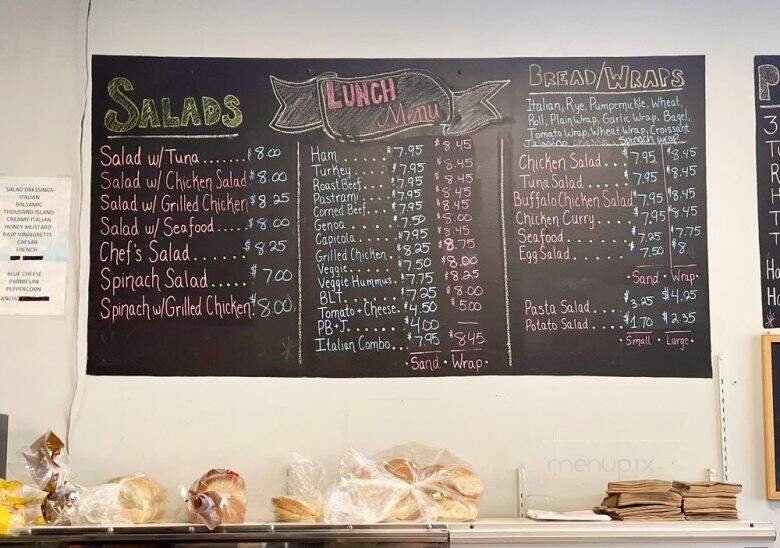 SALAD DRESSINGS
ITALIAN
BALSAMIC
THOUSAND ISLAND
CREAMY ITALIAN
HONEY MUSTARD
RASP VINAIGRETTE
CAESAR
FRENCH
BLUE CHEESE
PARMESAN
PEPPERCORN
SALADS
Salad w/Tuna....... $8.00
Salad w/ Chicken Salad $8.00
Salad w/ Grilled Chicken $8.25
Salad w/ Seafood.... $8.00
Chef's Salad....... $8.25
Spinach Salad..... $7.00
Spinach w/Grilled Chicken $8.00
LUNCH
Menu
Ham $7.95 $8.45
Turkey $7.95 $8.45
Roast Beef $7.95 $8.45
Pastrami $7.95 $8.45
Corned Beef $7.95 $8.45
Genoa $7.50 $8.00
Capicola $7.95 $8.45
Grilled Chicken $8.25 $8.75
Veggie $7.50 $8.00
Veggie Hummus $7.75 $8.25
BLT $7.25 $8.00
Tomato + Cheese $4.50 $5.00
PB+J $4.00 —
Italian Combo $7.95 $8.45
· Sand · Wrap ·
BREAD/WRAPS
Italian, Rye, Pumpernickle, Wheat,
Roll, Plain Wrap, Garlic Wrap, Bagel,
Tomato Wrap, Wheat Wrap, Croissant
Jalapeño Cheese, Spinach wrap
Chicken Salad... $7.95 $8.45
Tuna Salad.... $7.95 $8.45
Buffalo Chicken Salad $7.95 $8.45
Chicken Curry.... $7.95 $8.45
Seafood....... $7.25 $7.75
Egg Salad..... $7.50 $8.
· Sand · Wrap ·
Pasta Salad.... $3.25 $4.25
Potato Salad.... $1.70 $2.35
· Small · Large ·
menupix